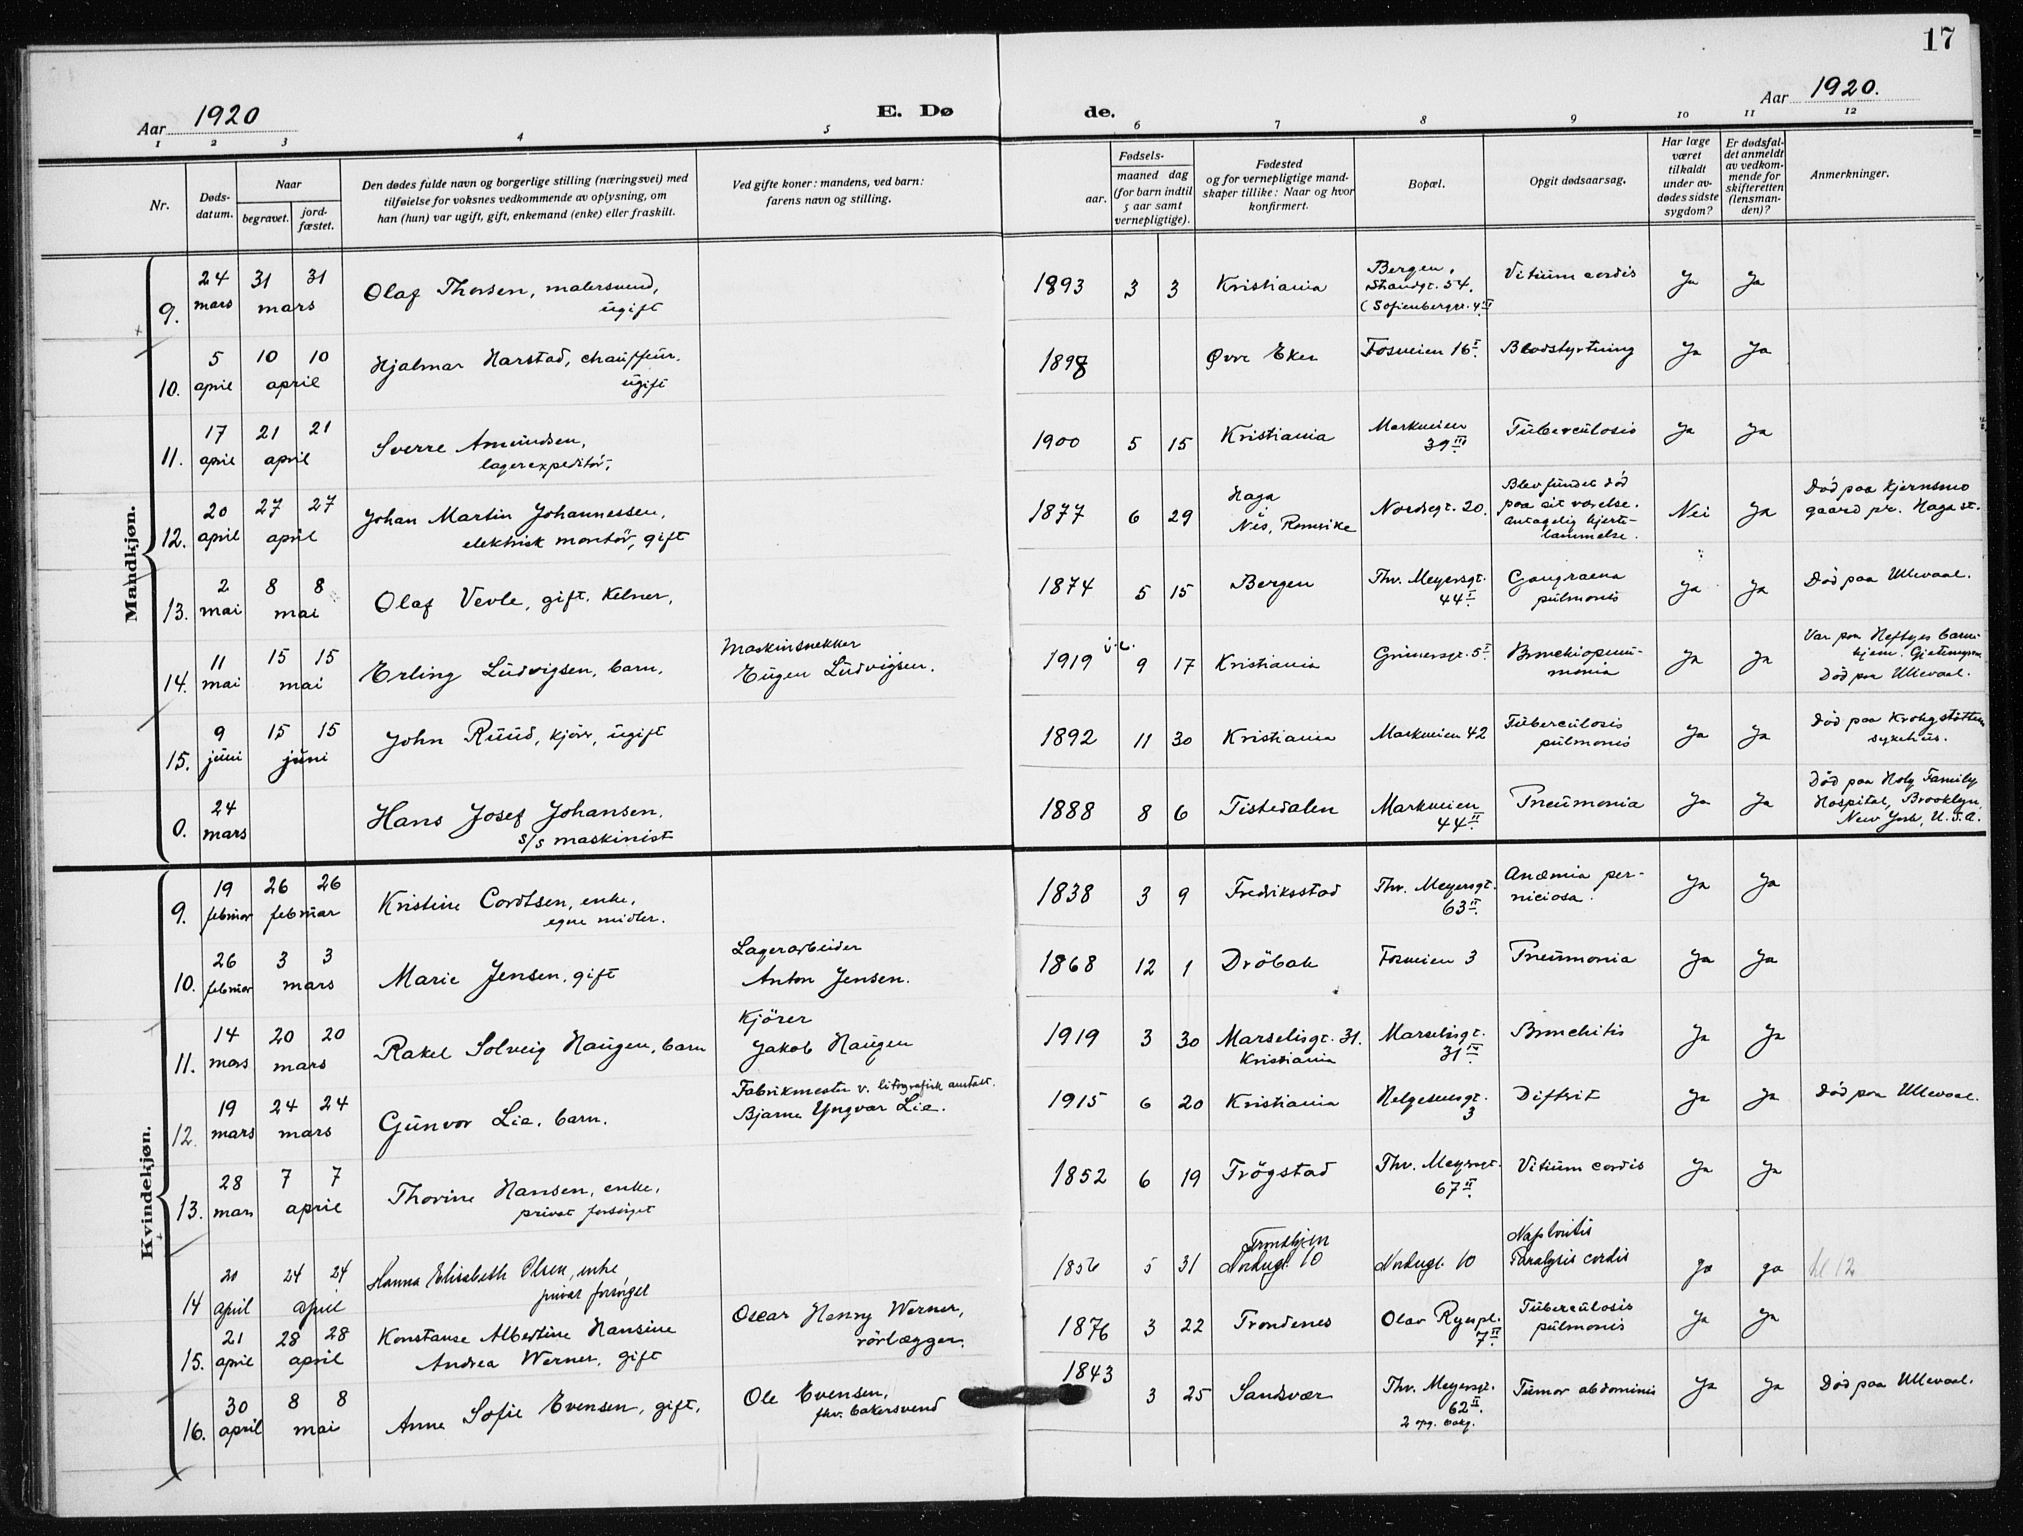 17
Aar 1920 E. Dø de. Aar 1920.
1 2 3 4 5 6 7 8 9 10 11 12
Nr.
Døds-
datum.
Naar
begravet.
jord-
fæstet.
Den dødes fulde navn og borgerlige stilling (næringsvei) med
tilføielse for voksnes vedkommende av oplysning, om
han (hun) var ugift, gift, enkemand (enke) eller fraskilt.
Ved gifte koner: mandens, ved barn:
farens navn og stilling.
aar.
Fødsels-
maaned dag
(for barn indtil
5 aar samt
vernepligtige).
Fødested
og for vernepligtige mand-
skaper tillike: Naar og hvor
konfirmert.
Bopæl.
Opgit dødsaarsag.
Har læge
været
tilkaldt
under av-
dødes sidste
sygdom?
Er dødsfal-
det anmeldt
av vedkom-
mende for
skifteretten
(lensman-
den)?
Anmerkninger.
Mandkjøn.
9. 24 mars 31 31 mars
Olaf Thorsen, malersvend,
ugift
1893 3 3 Kristiania
Bergen,
Strandgt. 54.
(Sofienberggt. 4 II
Vitium cordis Ja Ja
10. 5 april 10 10 april
Hjalmar Harstad, chauffeur.
ugift
1898 Øvre Eker Fosveien 16 I. Blodstyrtning Ja Ja
11. 17 april 21 21 april
Sverre Amundsen,
lagerexpeditör,
1900 5 15 Kristiania
Markveien
39 III.
Tuberculosis Ja Ja
12. 20 april 27 27 april
Johan Martin Johannessen,
elektrisk montör, gift
1877 6 29
Haga
Nes, Romerike
Nordregt. 20.
Blev fundet död
paa sit værelse.
antagelig hjerte-
lammelse.
Nei Ja
Död paa Kjernsmo
gaard pr. Haga st.
13. 2 mai 8 8 mai
Olaf Vevle, gift. Kelner,
1874 5 15 Bergen
Thv. Meyersgt.
44 I.
Gangraena
pulmonis
Ja Ja Död paa Ullevaal.
14. 11 mai 15 15 mai
Erling Ludvigsen, barn.
Maskinsnekker
Eugen Ludvigsen.
1919 9 17 Kristiania Grünersgt. 5 I.
Bronchiopneu-
monia
Ja Ja
Var paa Heftyes barne-
hjem.
Död paa Ullevaal.
15. 9 juni 15 15 juni
John Ruud, kjörer, ugift
1892 11 30 Kristiania Markveien 42
Tuberculosis
pulmonis
Ja Ja
Död paa Krohgstötten
sykehus.
0. 24 mars
Hans Josef Johansen.
s/s maskinist
1888 8 6 Tistedalen
Markveien
44 II.
Pneumonia Ja Ja
Död paa Holy Family
Hospital, Brooklyn,
New York, U.S.A.
Kvindekjøn.
9. 19 februar 26 26 februar
Kristine Cordtsen, enke,
egne midler.
1838 3 9 Fredriksstad
Thv. Meyersgt.
63 II.
Anæmia per-
niciosa.
Ja Ja
10. 26 februar 3 3 mars
Marie Jensen, gift
Lagerarbeider
Anton Jensen.
1868 12 1 Dröbak Fosveien 3 Pneumonia Ja Ja
11. 14 mars 20 20 mars
Rakel Solveig Haugen, barn
Kjörer
Jakob Haugen
1919 3 30
Marselisgt. 31.
Kristiania
Marselisgt.
31 IV.
Bronchitis Ja Ja
12. 19 mars 24 24 mars
Gunvor Lie, barn.
Fabrikmester v. litografisk anstalt.
Bjarne Yngvar Lie.
1915 6 20 Kristiania
Helgesensgt.
3
Diftrit Ja Ja Död paa Ullevaal.
13. 28 mars 7 7 april
Thorine Hansen, enke,
privat forsörget
1852 6 19 Trögstad
Thv. Meyersgt.
67 II.
Vitium cordis Ja Ja
14 20 april 24 24 april
Hanna Elisabeth Olsen, enke
privat forsörget
1856 5 31
Trondhjem
Nordregt. 10
Nordregt. 10
Paralysis cordis
ja ja kl 12
15. 21 april 28 28 april
Konstanse Albertine Hansine
Andrea Werner, gift
Oscar Henry Werner,
rörlægger.
1876 3 22 Trondenes
Olav Ryespl.
7 II.
Tuberculosis
pulmonis
Ja Ja
16. 30 april 8 8 mai
Anne Sofie Evensen, gift,
Ole Evensen,
fhv. bakersvend
1843 3 25 Sandsvær
Thv. Meyersgt.
62 II.
2 opg. bakg.
Tumor abdominis Ja Ja Död paa Ullevaal.